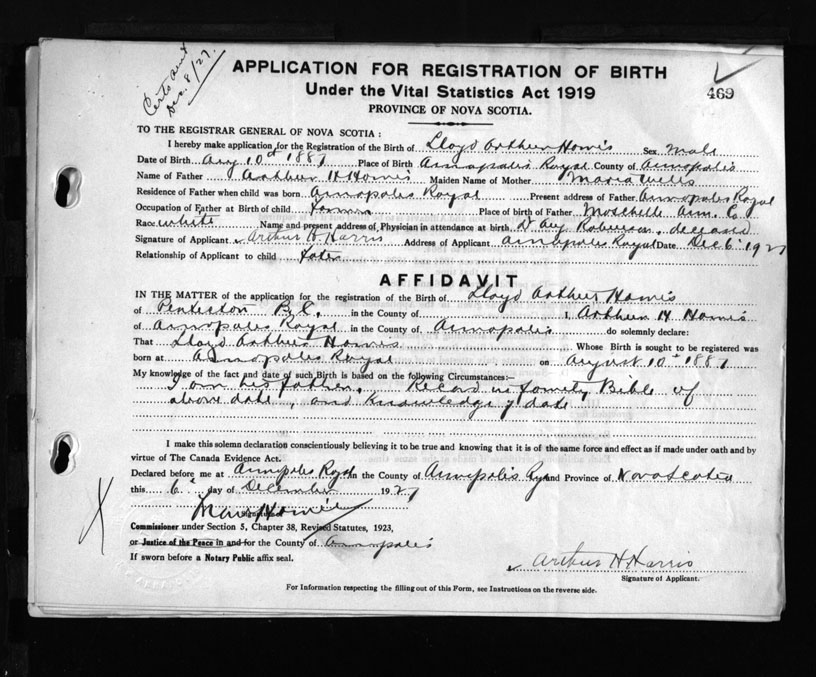 Certs sent
Dec. 8/27.
APPLICATION FOR REGISTRATION OF BIRTH
Under the Vital Statistics Act 1919
469
PROVINCE OF NOVA SCOTIA.
TO THE REGISTRAR GENERAL OF NOVA SCOTIA :
I hereby make application for the Registration of the Birth of Lloyd Arthur Harris Sex Male
Date of Birth Aug 10th 1887 Place of Birth Annapolis Royal County of Annapolis
Name of Father Arthur H Harris Maiden Name of Mother Maria Wells
Residence of Father when child was born Annapolis Royal Present address of Father Annapolis Royal
Occupation of Father at Birth of child Farmer Place of birth of Father Moschelle Ann. Co
Race white Name and present address of Physician in attendance at birth Dr Aug Robinson, deceased
Signature of Applicant Arthur H. Harris Address of Applicant Annapolis Royal Date Dec 6th 1927
Relationship of Applicant to child father
AFFIDAVIT
IN THE MATTER of the application for the registration of the Birth of Lloyd Arthur Harris
of Penticton B.C. in the County of I, Arthur H Harris
of Annapolis Royal in the County of Annapolis do solemnly declare:
That Lloyd Arthur Harris Whose Birth is sought to be registered was
born at Annapolis Royal on August 10th 1887
My knowledge of the fact and date of such Birth is based on the following Circumstances:—
I am his father. Record in family Bible of
above date, and knowledge of date
I make this solemn declaration conscientiously believing it to be true and knowing that it is of the same force and effect as if made under oath and by
virtue of The Canada Evidence Act.
Declared before me at Annapolis Royal in the County of Annapolis and Province of Nova Scotia
this 6th day of December 1927
Harris
Commissioner under Section 5, Chapter 38, Revised Statutes, 1923,
or Justice of the Peace in and for the County of Annapolis
If sworn before a Notary Public affix seal.
Arthur H. Harris
Signature of Applicant.
For Information respecting the filling out of this Form, see Instructions on the reverse side.